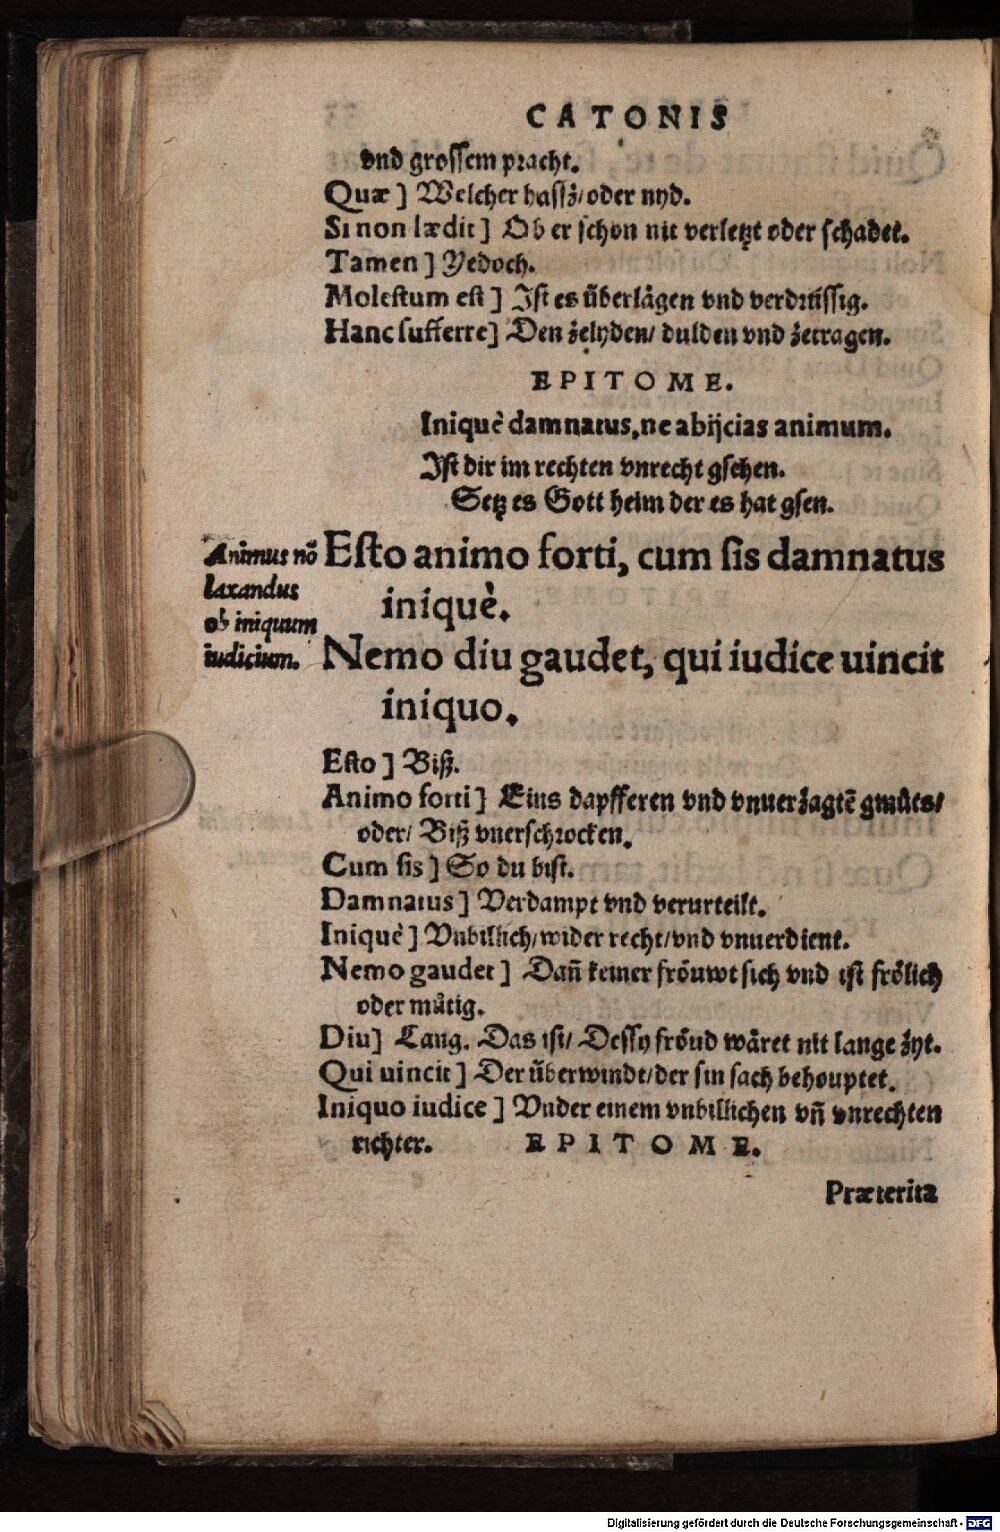 CATONIS
vnd grossem pracht.
Quæ] Welcher hassz/oder nyd.
Si non lædit] Ob er schon nit verletzt oder schadet.
Tamen] Yedoch.
Molestum est] Ist es überlägen vnd verdrüssig.
Hanc sufferre] Den zelyden/ dulden vnd zetragen.
EPITOME.
Iniquè damnatus, ne abijcias animum.
Ist dir im rechten vnrecht gsehen.
Setz es Gott heim der es hat gsen.
Animus nõ
laxandus
ob iniquum
iudicium.
Esto animo forti, cum sis damnatus
iniquè.
Nemo diu gaudet, qui iudice uincit
iniquo.
Esto] Biß.
Animo forti] Eins dapfferen vnd vnuerzagtẽ gmůts/
oder/ Biß vnerschrocken.
Cum sis] So du bist.
Damnatus] Verdampt vnd verurteilt.
Iniquè] Vnbillich/wider recht/vnd vnuerdient.
Nemo gaudet] Dañ keiner fröuwt sich vnd ist frölich
oder můtig.
Diu] Lang. Das ist/ Dessy fröud wäret nit lange zyt.
Qui uincit] Der überwindt/der sin sach behouptet.
Iniquo iudice] Vnder einem vnbillichen vñ vnrechten
richter.
EPITOME.
Præterita
Digitalisierung gefördert durch die Deutsche Forschungsgemeinschaft - DFG